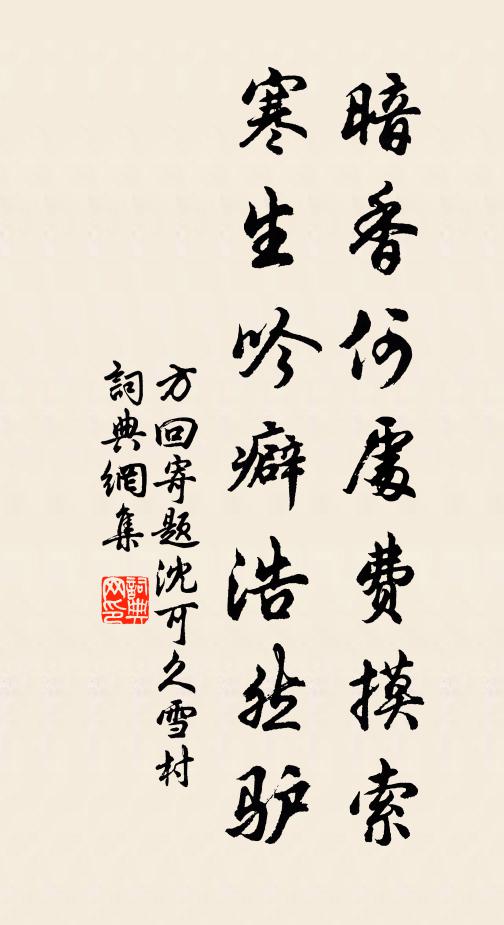 暗香何處费摸索
寒生吟癖浩然驴
方回寄题沈可久雪村
詞典網集
詞典網印